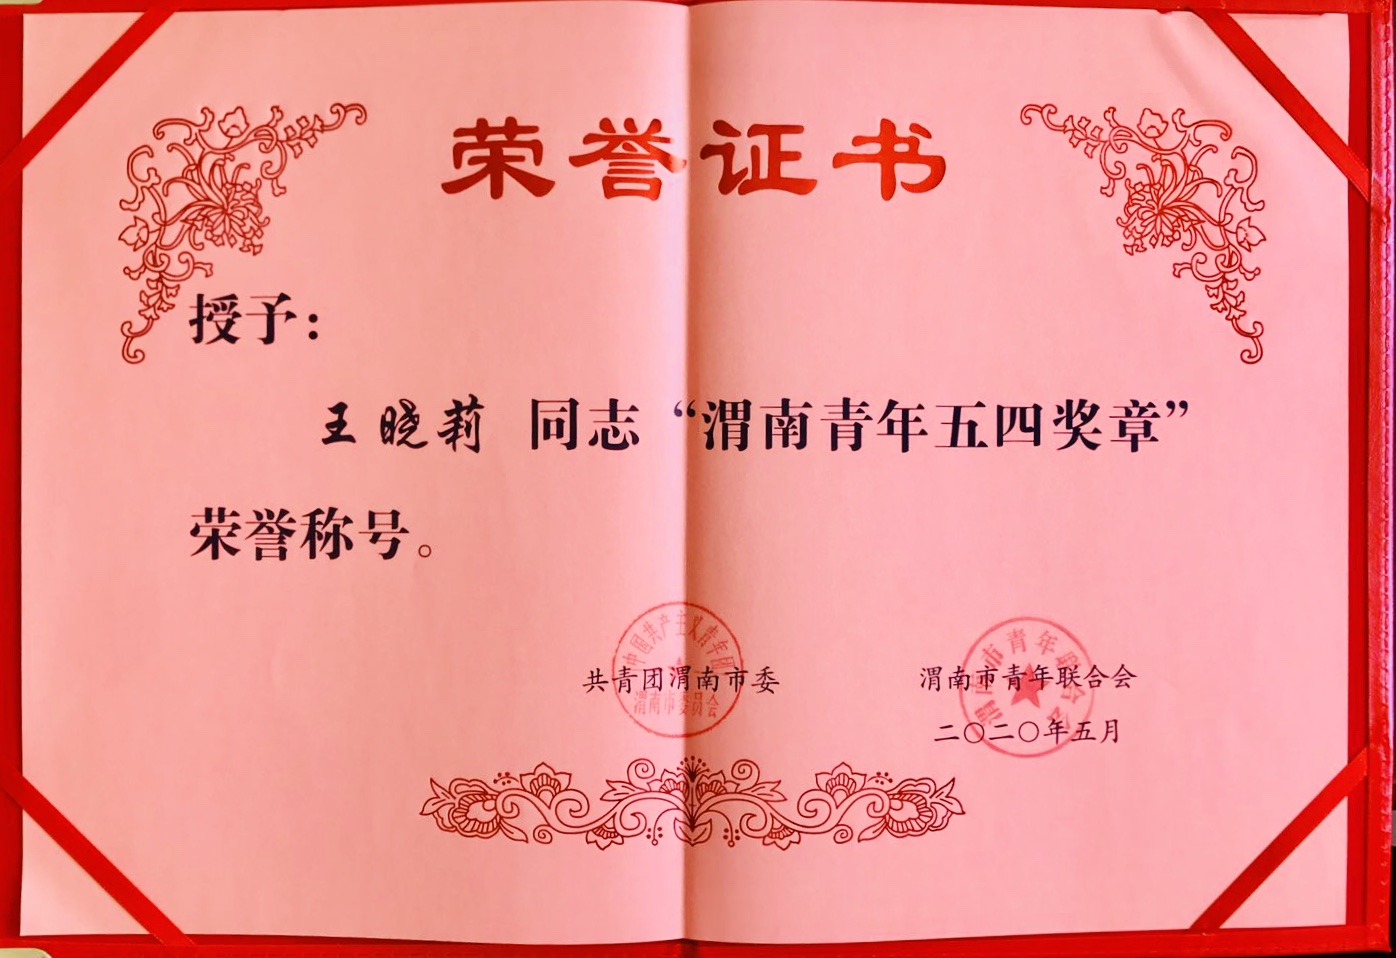 荣誉证书
授予：
王晓莉 同志“渭南青年五四奖章”
荣誉称号。
中国共产主义青年团
渭南市委员会
共青团渭南市委
渭南市青年联合会
渭南市青年联合会
二〇二〇年五月